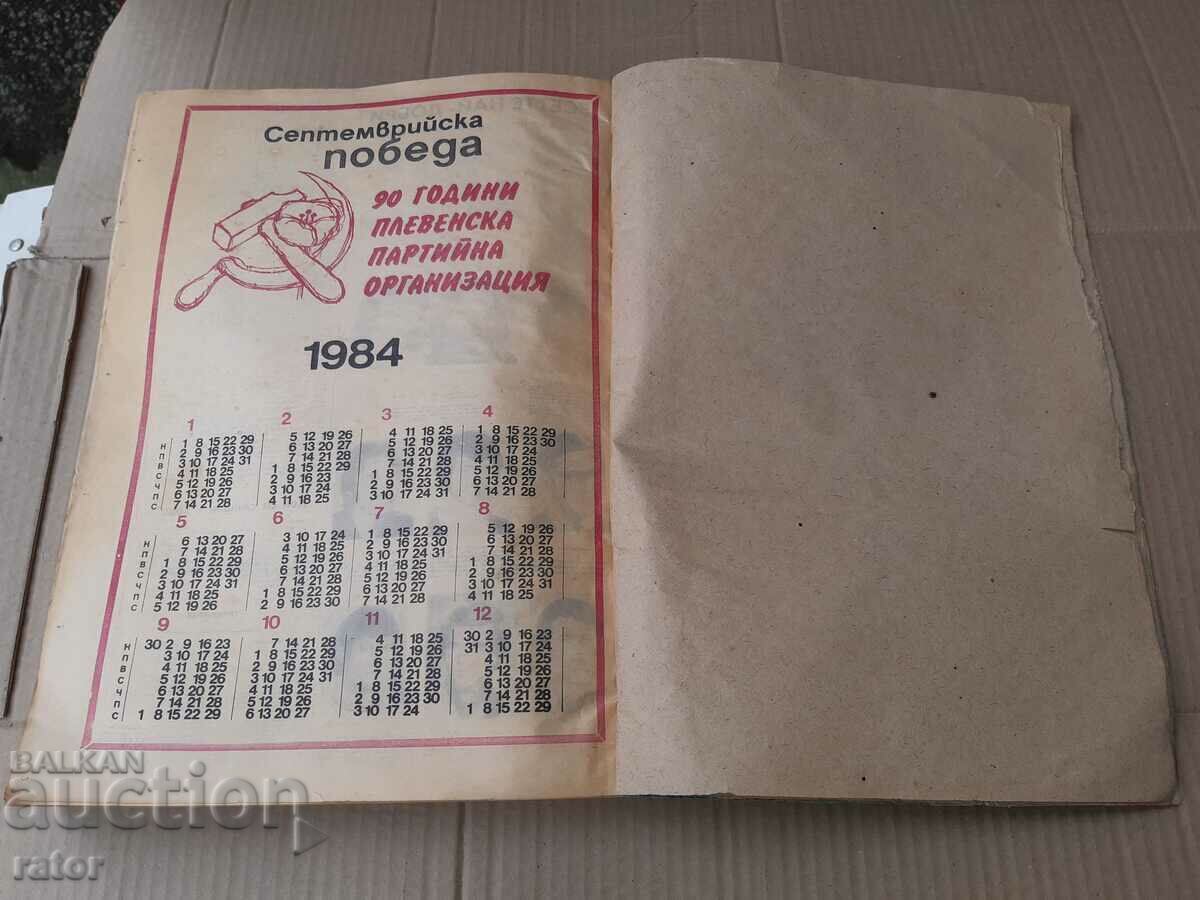 Септемврийска
победа
90 ГОДИНИ
ПЛЕВЕНСКА
ПАРТИЙНА
ОРГАНИЗАЦИЯ
1984
1 2 3 4
Н 1 8 15 22 29 5 12 19 26 4 11 18 25 1 8 15 22 29
П 2 9 16 23 30 6 13 20 27 5 12 19 26 2 9 16 23 30
В 3 10 17 24 31 7 14 21 28 6 13 20 27 3 10 17 24
С 4 11 18 25 1 8 15 22 29 7 14 21 28 4 11 18 25
Ч 5 12 19 26 2 9 16 23 1 8 15 22 29 5 12 19 26
П 6 13 20 27 3 10 17 24 2 9 16 23 30 6 13 20 27
С 7 14 21 28 4 11 18 25 3 10 17 24 31 7 14 21 28
5 6 7 8
Н 6 13 20 27 3 10 17 24 1 8 15 22 29 5 12 19 26
П 7 14 21 28 4 11 18 25 2 9 16 23 30 6 13 20 27
В 1 8 15 22 29 5 12 19 26 3 10 17 24 31 7 14 21 28
С 2 9 16 23 30 6 13 20 27 4 11 18 25 1 8 15 22 29
Ч 3 10 17 24 31 7 14 21 28 5 12 19 26 2 9 16 23 30
П 4 11 18 25 1 8 15 22 29 6 13 20 27 3 10 17 24 31
С 5 12 19 26 2 9 16 23 30 7 14 21 28 4 11 18 25
9 10 11 12
Н 30 2 9 16 23 7 14 21 28 4 11 18 25 30 2 9 16 23
П 3 10 17 24 1 8 15 22 29 5 12 19 26 31 3 10 17 24
В 4 11 18 25 2 9 16 23 30 6 13 20 27 4 11 18 25
С 5 12 19 26 3 10 17 24 31 7 14 21 28 5 12 19 26
Ч 6 13 20 27 4 11 18 25 1 8 15 22 29 6 13 20 27
П 7 14 21 28 5 12 19 26 2 9 16 23 30 7 14 21 28
С 1 8 15 22 29 6 13 20 27 3 10 17 24 1 8 15 22 29
BALKAN
auction
rator